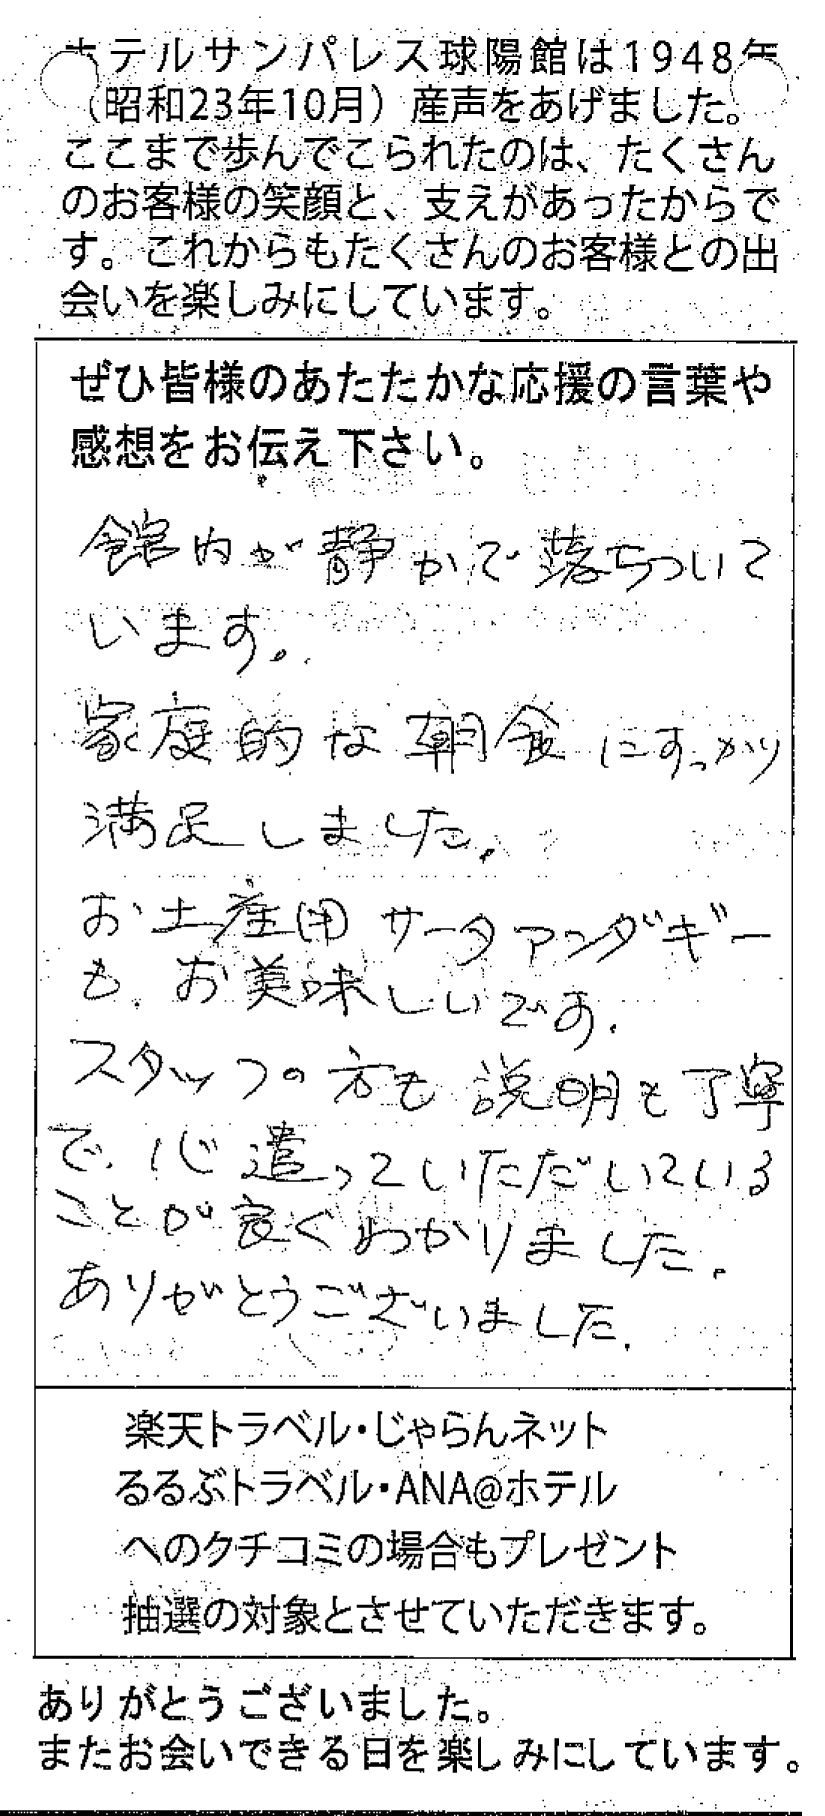 ホテルサンパレス球陽館は1948年
（昭和23年10月）産声をあげました。
ここまで歩んでこられたのは、たくさん
のお客様の笑顔と、支えがあったからで
す。これからもたくさんのお客様との出
会いを楽しみにしています。
ぜひ皆様のあたたかな応援の言葉や
感想をお伝え下さい。
館内が静かで落ちついて
います。
家庭的な朝食にすっかり
満足しました。
お土産用サータアンダギー
も、お美味しいです。
スタッフの方も説明も丁寧
で、心遣っていただいている
ことが良くわかりました。
ありがとうございました。
楽天トラベル・じゃらんネット
るるぶトラベル・ANA@ホテル
へのクチコミの場合もプレゼント
抽選の対象とさせていただきます。
ありがとうございました。
またお会いできる日を楽しみにしています。